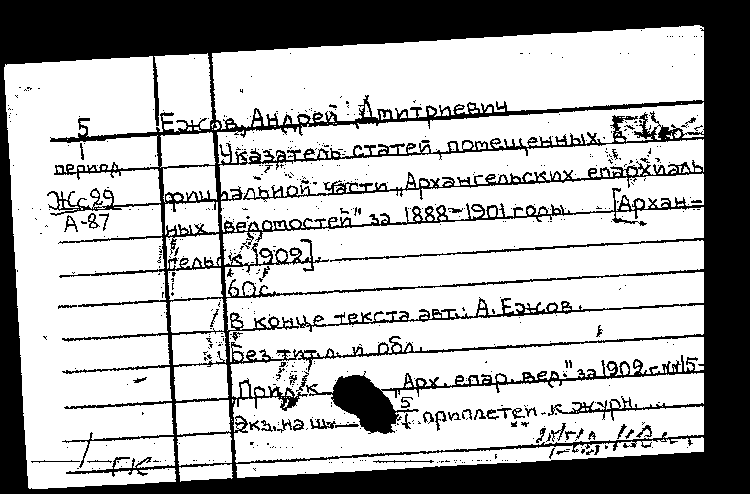 5 Ежов, Андрей Дмитриевич
период Указатель статей, помещенных в нео-
Жс29 фициальной части „Архангельских епархиаль
А-87 ных ведомостей" за 1888-1901 годы. [Архан-
гельск, 1902].
60с.
В конце текста авт.: А. Ежов.
Без тит. л. и обл.
„Прил. к „Арх. епар. вед." за 1902 г. №15-
2кз. на ш. 5/1 приплетен к журн. ...
ГК